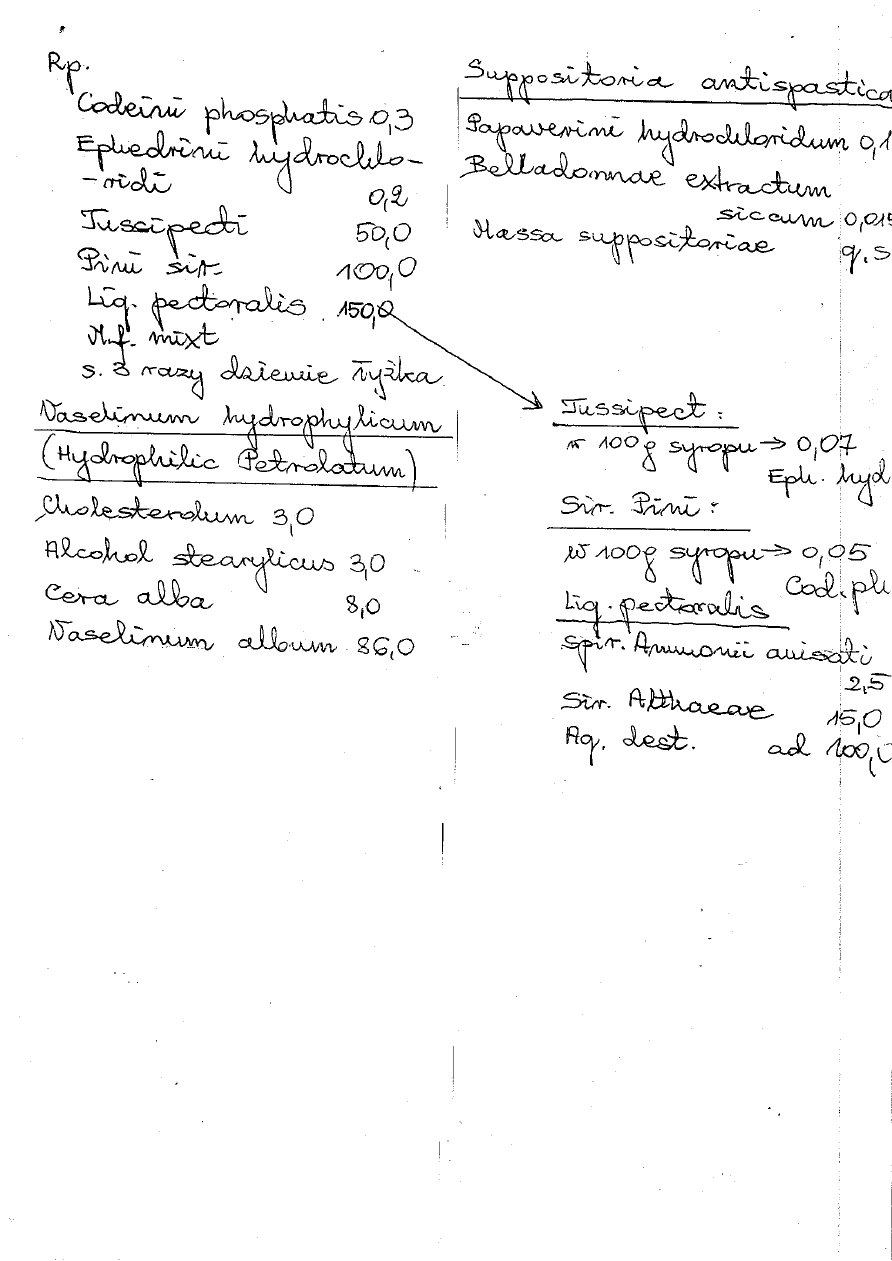 Rp.
Codeini phosphatis 0,3
Ephedrini hydrochlo-
-ridi 0,2
Tussipecti 50,0
Pini sir. 100,0
Liq. pectoralis 150,0
M.f. mixt
s. 3 razy dziennie łyżka
Vaselinum hydrophylicum
(Hydrophilic Petrolatum)
Cholesterolum 3,0
Alcohol stearylicus 3,0
Cera alba 8,0
Vaselinum album 86,0
Suppositoria antispastica
Papaverini hydrochloridum 0,1
Belladonnae extractum
siccum 0,015
Massa suppositoriae q.s
Tussipect :
w 100g syropu → 0,07
Eph. hyd
Sir. Pini :
w 100g syropu → 0,05
Cod. ph
Liq. pectoralis
Spir. Ammonii anisati
2,5
Sir. Althaeae 15,0
Aq. dest. ad 100,0